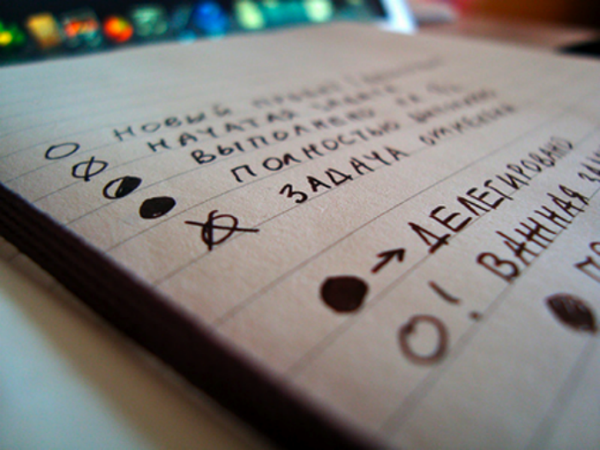 НОВЫЙ ПРОЕКТ
НАЧАТАЯ ЗАДАЧА
ВЫПОЛНЕНО НА 1/2
ПОЛНОСТЬЮ
ЗАДАЧА ОТМЕНЕНА
→ ДЕЛЕГИРОВАНО
! ВАЖНАЯ